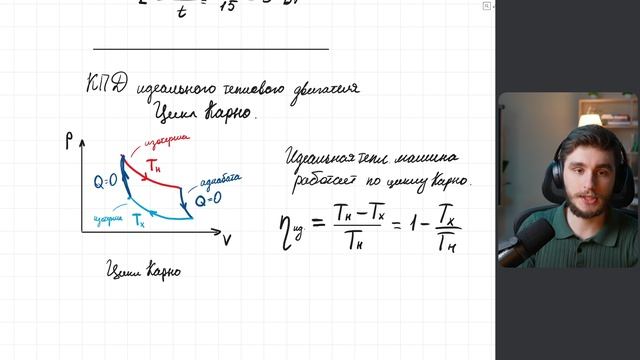 КПД идеального теплового двигателя
Цикл Карно.
P
изотерма
Tн
Q=0
адиабата
Q=0
изотерма
Tх
V
Цикл Карно
Идеальная тепл машина
работает по циклу Карно.
ηид. = (Tн − Tх)/Tн = 1 − Tх/Tн